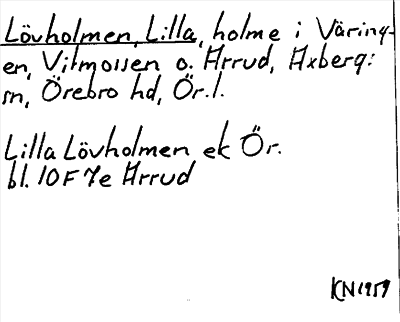 Lövholmen, Lilla, holme i Väring-
en, Vitmossen o. Ärrud, Axberg:
sn, Örebro hd, Ör.l.
Lilla Lövholmen ek Ör.
bl. 10F 7e Ärrud
KN 1959